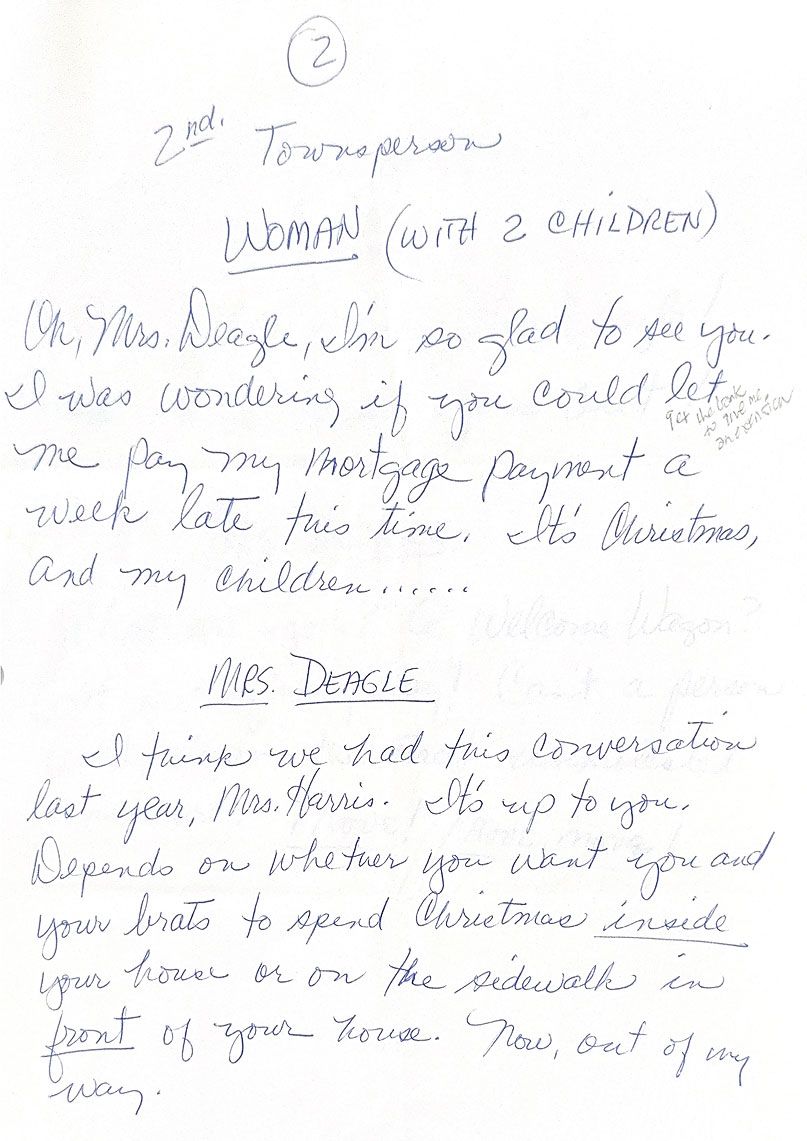 2
2nd. Townsperson
WOMAN (WITH 2 CHILDREN)
Oh, Mrs. Deagle, I'm so glad to see you.
I was wondering if you could let
get the bank
to give me
an extension
me pay my mortgage payment a
week late this time. It's Christmas,
and my children......
MRS. DEAGLE
I think we had this conversation
last year, Mrs. Harris. It's up to you.
Depends on whether you want you and
your brats to spend Christmas inside
your house or on the sidewalk in
front of your house. Now, out of my
way.
Welcome Wagon?
Can't a person